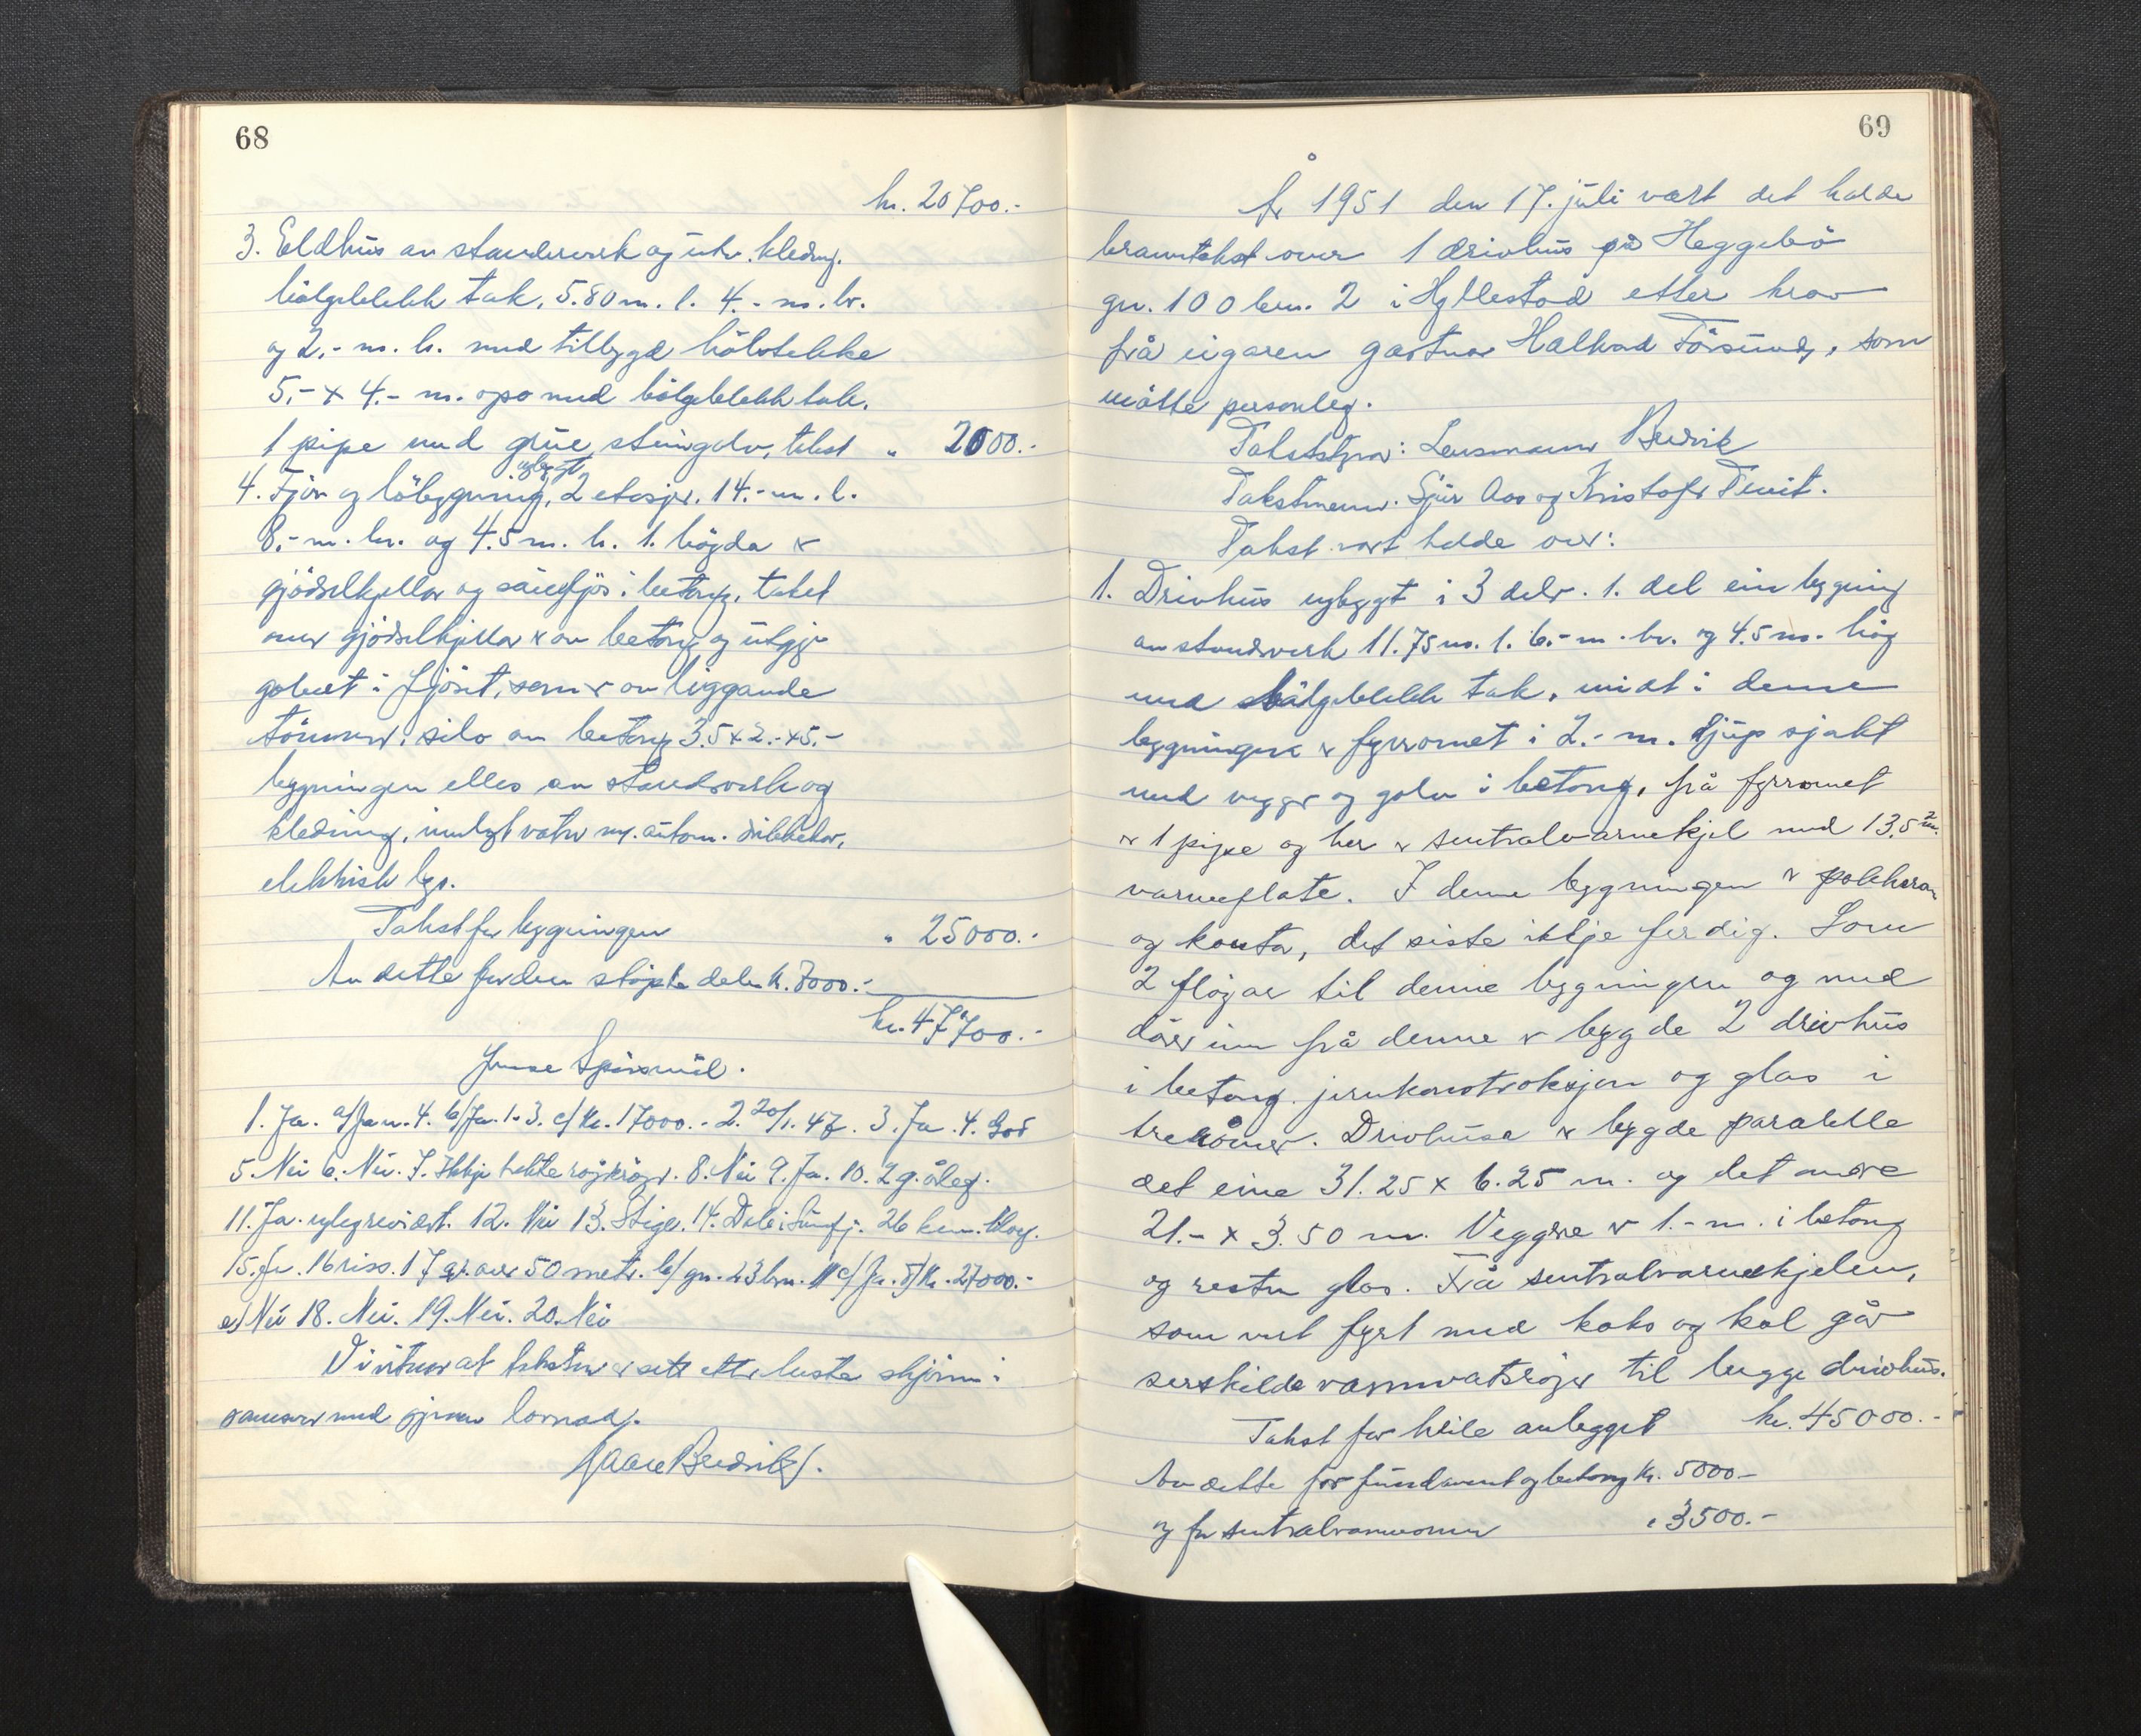 68
kr. 20700.-
3. Eldhus av standerverk og utv. kledng.
bölgeblekk tak. 5.80 m. l. 4.- m. br.
og 2.- m. h. med tilbygd
5.- x 4.- m. med bölgeblekk tak.
1 pipe med grue, steingolv, takst " 2000.-
nybygt
4. Fjös og löbygning, 2 etasjer. 14.- m. l.
8.- m. br. og 4.5 m. h. 1. högda r
gjödselkjellar og sauefjös i betong, taket
over gjödselkjellar r av betong og utgjer
golvet i fjöset, som r av liggande
tömmer, silo av betong 3.5 x 2.- x 5.-
bygningen elles av standverk og
kledning, innlagt vatn m. autom. drikkekar,
elektrisk lys.
Takst for bygningen " 25000.-
Av dette for den stöypte delen kr. 7000.-
kr. 47700.-
Ymse Spörsmål.
1. Ja. a/ Ja nr. 4. b/ Ja. 1-3. c/ Kr. 17000.- 2. 20/1. 47. 3. Ja. 4. God
5. Nei 6. Nei. 7. Ikkje 8. Nei 9. Ja. 10. 2 g. årleg.
11. Ja. 12. Nei 13. Stige. 14. Dale i Sunnfj. 26 km.
15. Ja. 16 riss. 17 a/. over 50 metr. b/ gn. 23 brn. c/ Ja. d/ Kr. 27000.-
e/ Nei 18. Nei. 19. Nei. 20. Nei
Vi vitner at taksten er sett etter beste skjönn i
samsvar med gjevne lovnad.
69
År 1951 den 17. juli vart det halde
branntakst over 1 drivhus på Heggebö
gn. 100 brn. 2 i Hyllestad etter krav
frå eigaren gartnar Hallvard, som
mötte personleg.
Takststyrar: Lensmann
Takstmenn: Sjur Aas og Kristofer
Takst vart halde over:
1. Drivhus nybygt i 3 deler. 1. del ein bygning
av standverk 11.75 m. l. 6.- m. br. og 4.5 m. hög
med bölgeblekk tak, midt i denne
bygningen r fyrromet i 2.- m. djup sjakt
med vegger og golv i betong, frå fyrromet
r 1 pipe og her r sentralvarmekjel med 13.5 m2.
varmeflate. I denne bygningen r pakkerom
og kontor, det siste ikkje ferdig. Som
2 flöyar til denne bygningen og med
dörer inn frå denne r bygde 2 drivhus
i betong, jernkonstroksjon og glas i
treråmer. Drivhusa r bygde paralelle
det eine 31.25 x 6.25 m. og det andre
21.- x 3.50 m. Veggene r 1.- m. i betong
og resten glas. Frå sentralvarmekjelen,
som vert fyrt med koks og kol går
serskilde varmvatsröyr til begge drivhus.
Takst for heile anlegget kr. 45000.-
Av dette for fundament og betong kr. 5000-
og for sentralvarmeovnen " 3500.-